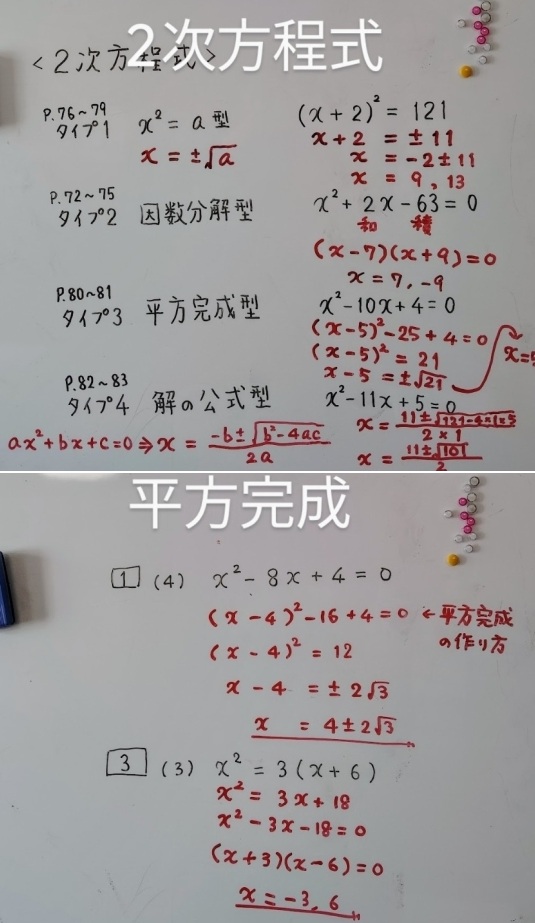 2次方程式
<2次方程式>
P.76~79
タイプ1 x² = a 型
x = ±√a
(x + 2)² = 121
x + 2 = ± 11
x = -2 ± 11
x = 9, 13
P.72~75
タイプ2 因数分解型
x² + 2x - 63 = 0
和 積
(x - 7)(x + 9) = 0
x = 7, -9
P.80~81
タイプ3 平方完成型
x² - 10x + 4 = 0
(x - 5)² - 25 + 4 = 0
(x - 5)² = 21
x - 5 = ±√21
x=5
P.82~83
タイプ4 解の公式型
ax² + bx + c = 0 ⇒ x = (-b ± √(b² - 4ac)) / 2a
x² - 11x + 5 = 0
x = (11 ± √(121-4×1×5)) / (2 × 1)
x = (11 ± √101) / 2
平方完成
1 (4) x² - 8x + 4 = 0
(x - 4)² - 16 + 4 = 0 ← 平方完成
の作り方
(x - 4)² = 12
x - 4 = ± 2√3
x = 4 ± 2√3
3 (3) x² = 3(x + 6)
x² = 3x + 18
x² - 3x - 18 = 0
(x + 3)(x - 6) = 0
x = -3, 6